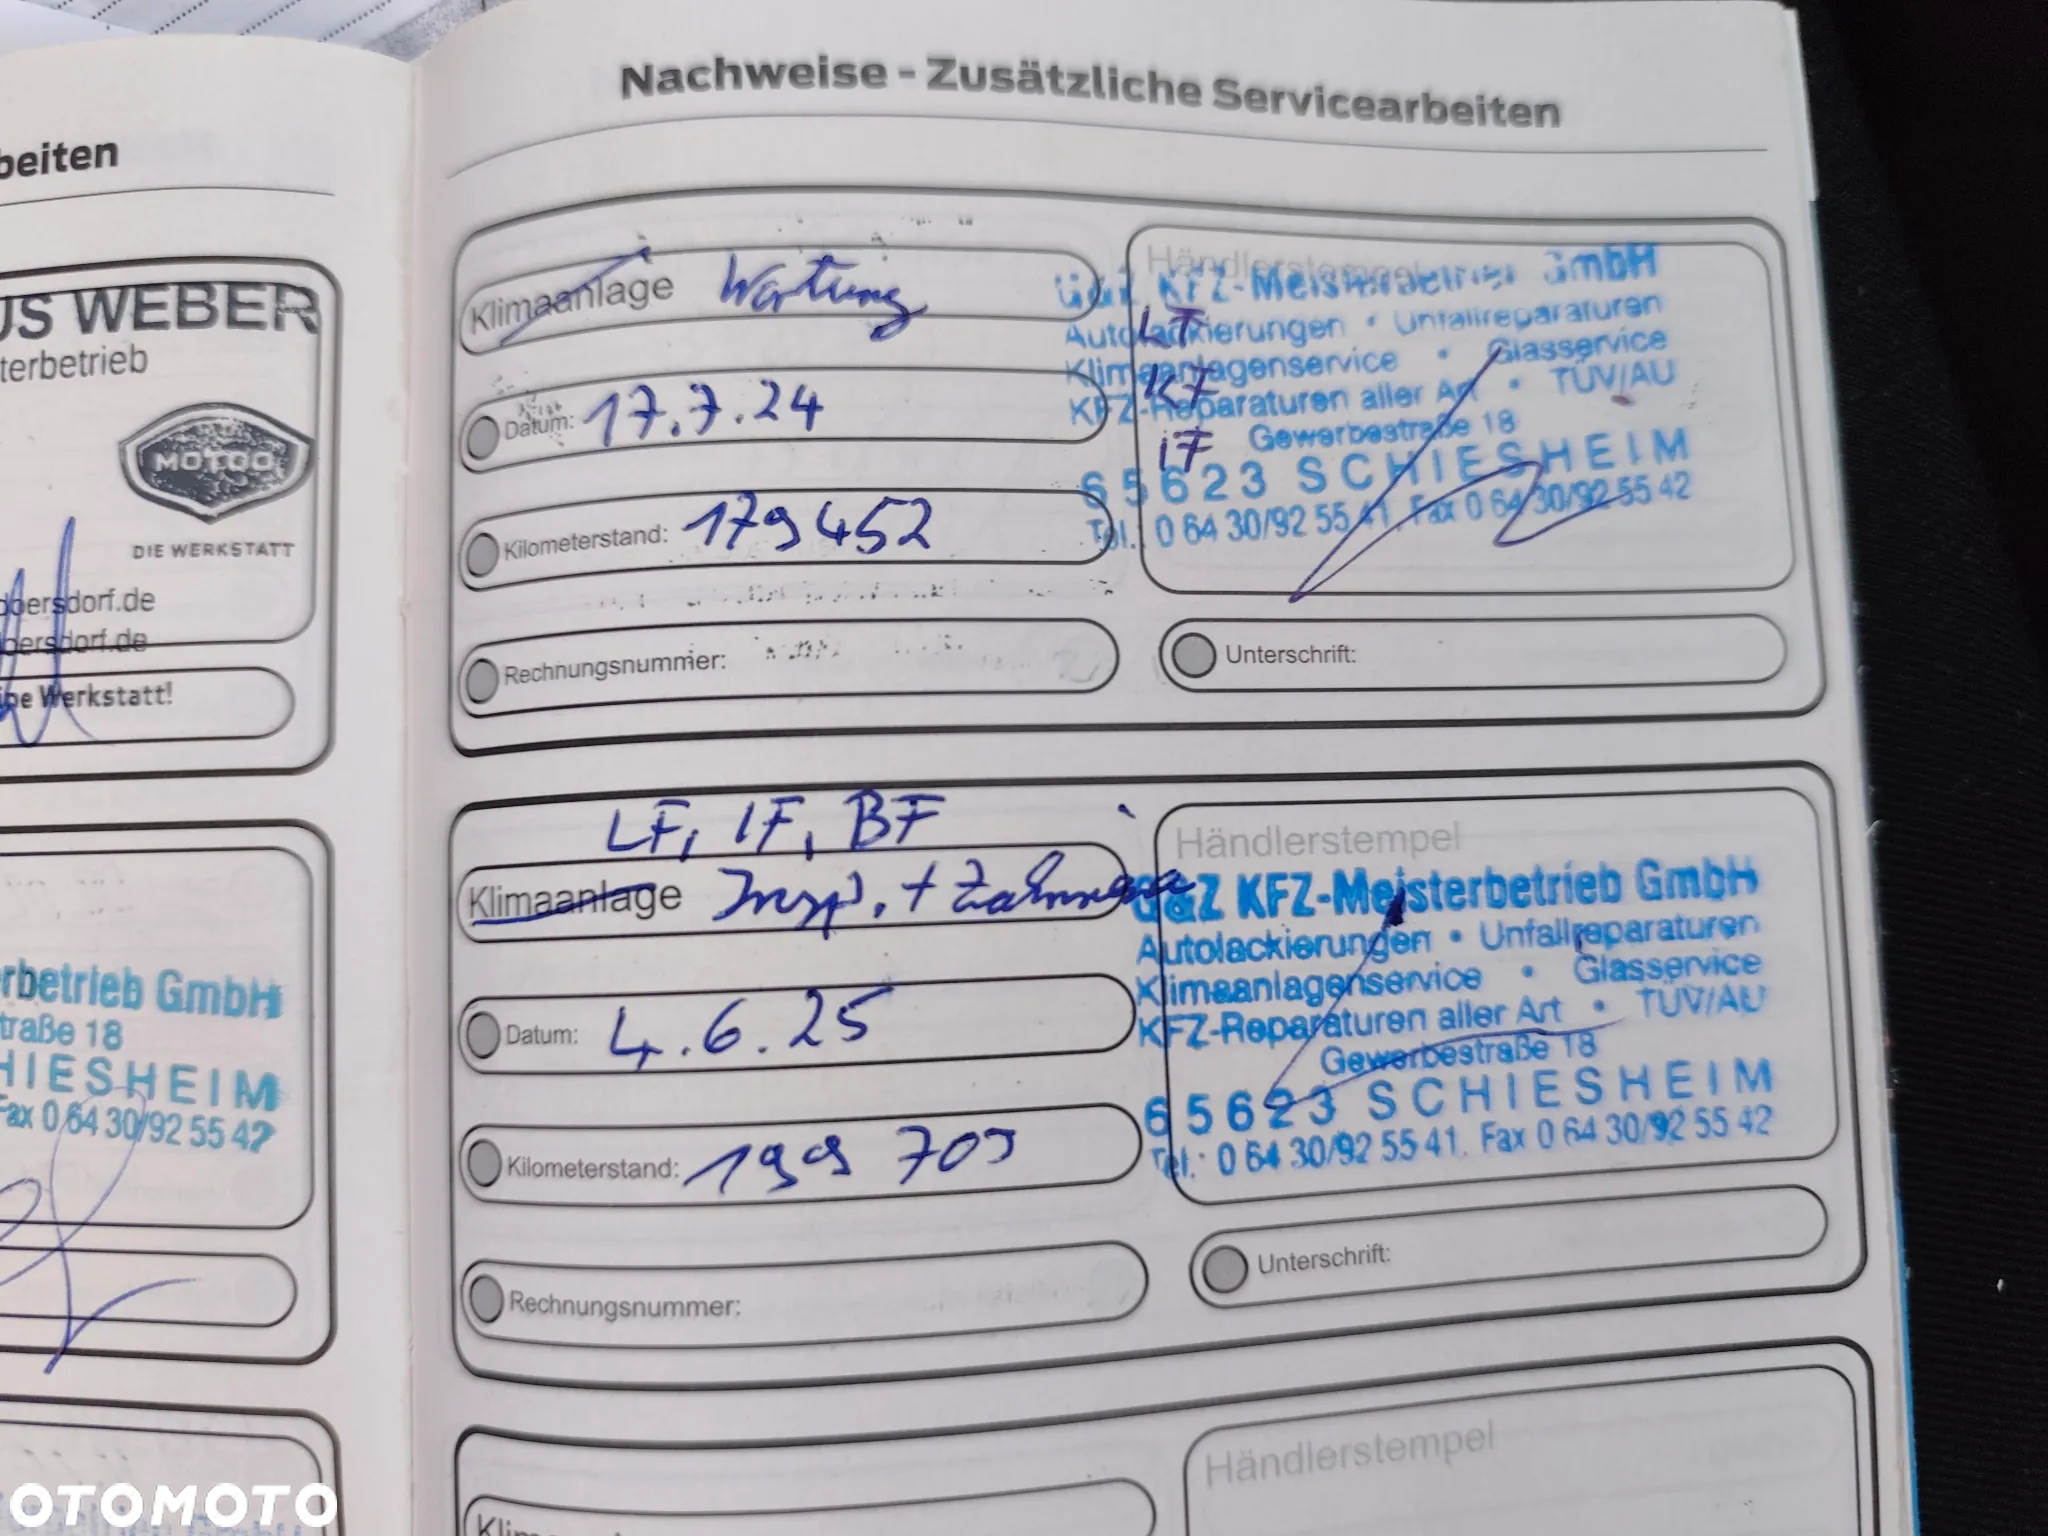 beiten
US WEBER
terbetrieb
MOTOO
DIE WERKSTATT
bersdorf.de
bersdorf.de
Werkstatt!
rbetrieb GmbH
traße 18
HIESHEIM
Fax 0 64 30/92 55 42
Nachweise - Zusätzliche Servicearbeiten
Klimaanlage Wartung
Datum: 17.7.24
Kilometerstand: 179452
Rechnungsnummer:
Händlerstempel
KFZ-Meisterbetrieb GmbH
Autolackierungen • Unfallreparaturen
Klimaanlagenservice • Glasservice
KFZ-Reparaturen aller Art • TÜV/AU
Gewerbestraße 18
65623 SCHIESHEIM
Tel.: 0 64 30/92 55 41, Fax 0 64 30/92 55 42
LF
KF
IF
Unterschrift:
LF, IF, BF
Klimaanlage Insp. +
Datum: 4.6.25
Kilometerstand: 199 709
Rechnungsnummer:
Händlerstempel
G&Z KFZ-Meisterbetrieb GmbH
Autolackierungen • Unfallreparaturen
Klimaanlagenservice • Glasservice
KFZ-Reparaturen aller Art • TÜV/AU
Gewerbestraße 18
65623 SCHIESHEIM
Tel.: 0 64 30/92 55 41, Fax 0 64 30/92 55 42
Unterschrift:
Händlerstempel
OTOMOTO